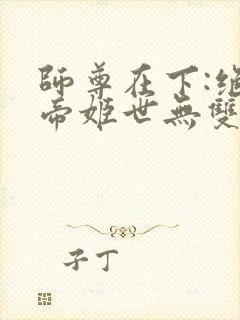 師尊在下:絕
帝姬世無雙
子丁